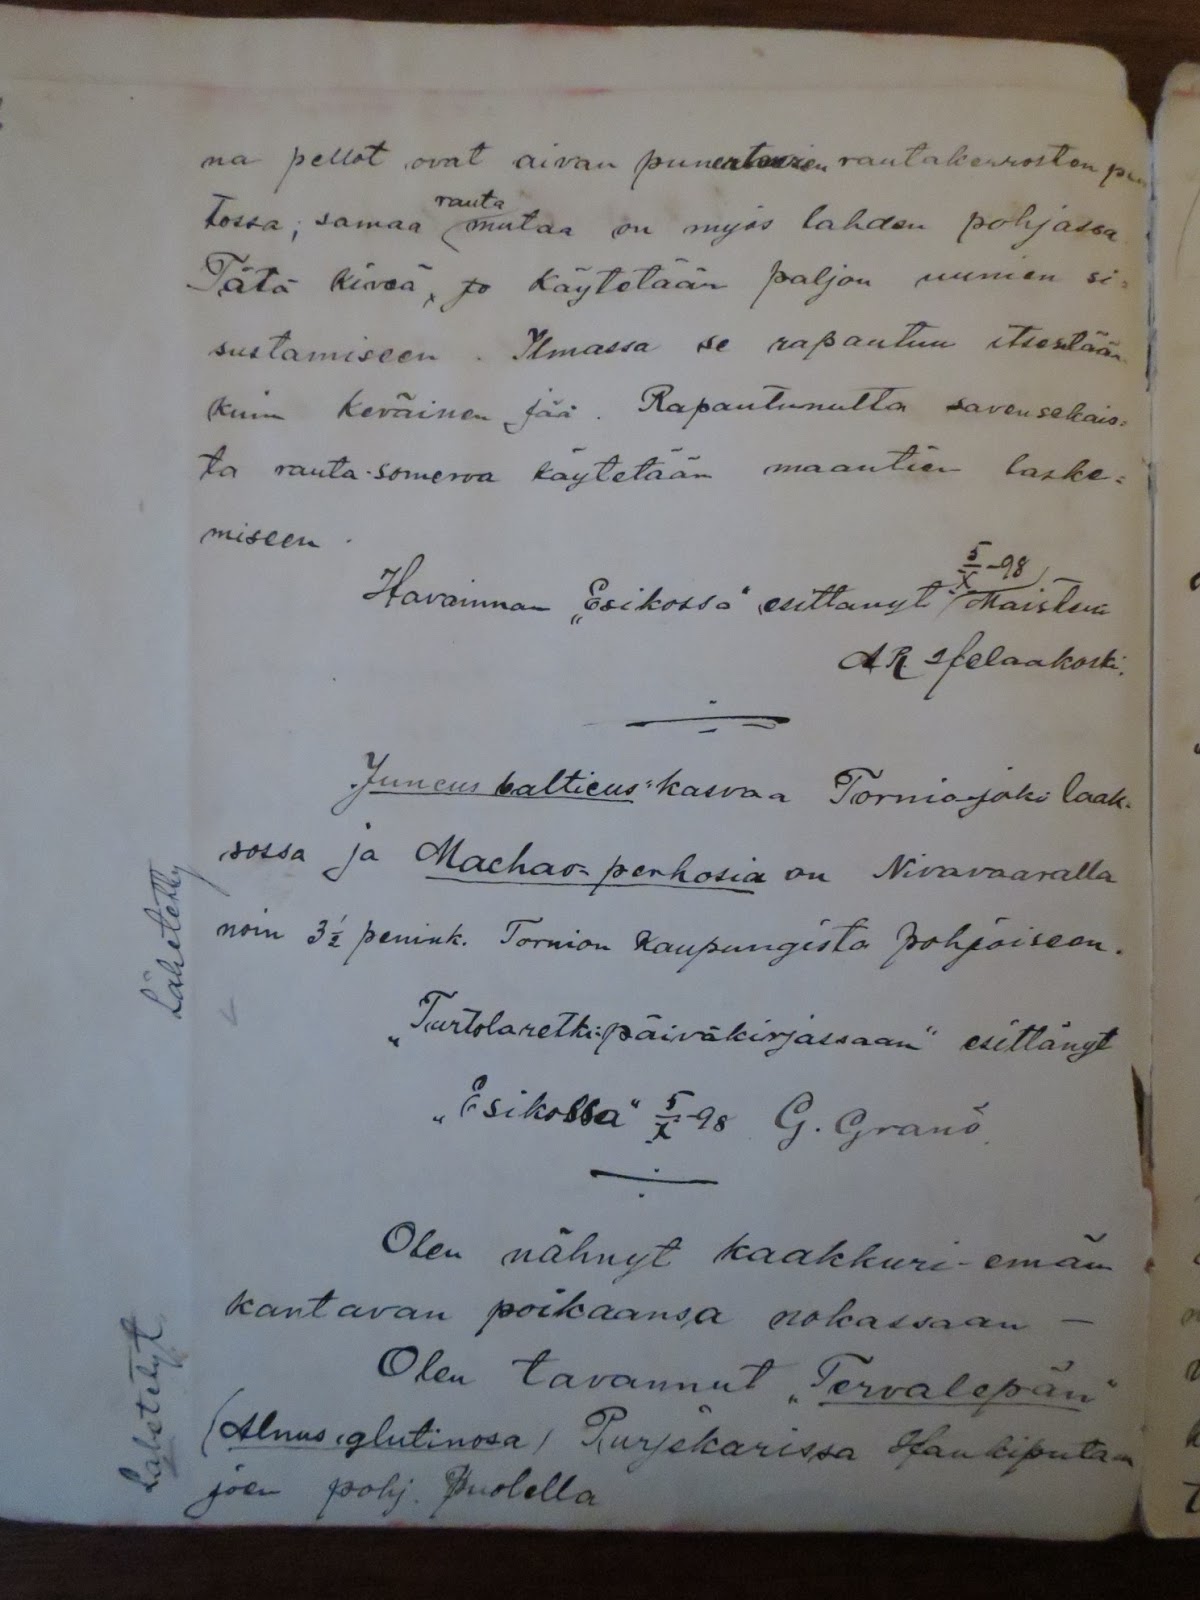 na pellot ovat aivan punertavien rautakerrosten puu
tossa; samaa rauta mutaa on myös lahden pohjassa
Tätä kiveä, jo käytetään paljon uunien si=
sustamiseen. Ilmassa se rapautuu itsestään
kuin keväinen jää. Rapautunutta savensekais=
ta rauta-somerva käytetään maantien laske=
miseen.
Havainnon „Esikossa“ esittänyt 5/X -98 Maisteri
A R. Helaakoski.
Juncus balticus kasvaa Tornio-joki laak-
sossa ja Machao=perhosia on Nivavaaralla
noin 3½ penink. Tornion kaupungista pohjoiseen.
„Turtolaretki-päiväkirjassaan“ esittänyt
„Esikossa“ 5/X -98 G. Granö.
Lähetetty
Olen nähnyt kaakkuri-emän
kantavan poikaansa nokassaan —
Olen tavannut „Tervalepän“
(Alnus glutinosa) Purjekarissa Haukiputaan
joen pohj. puolella
Lähetetyt